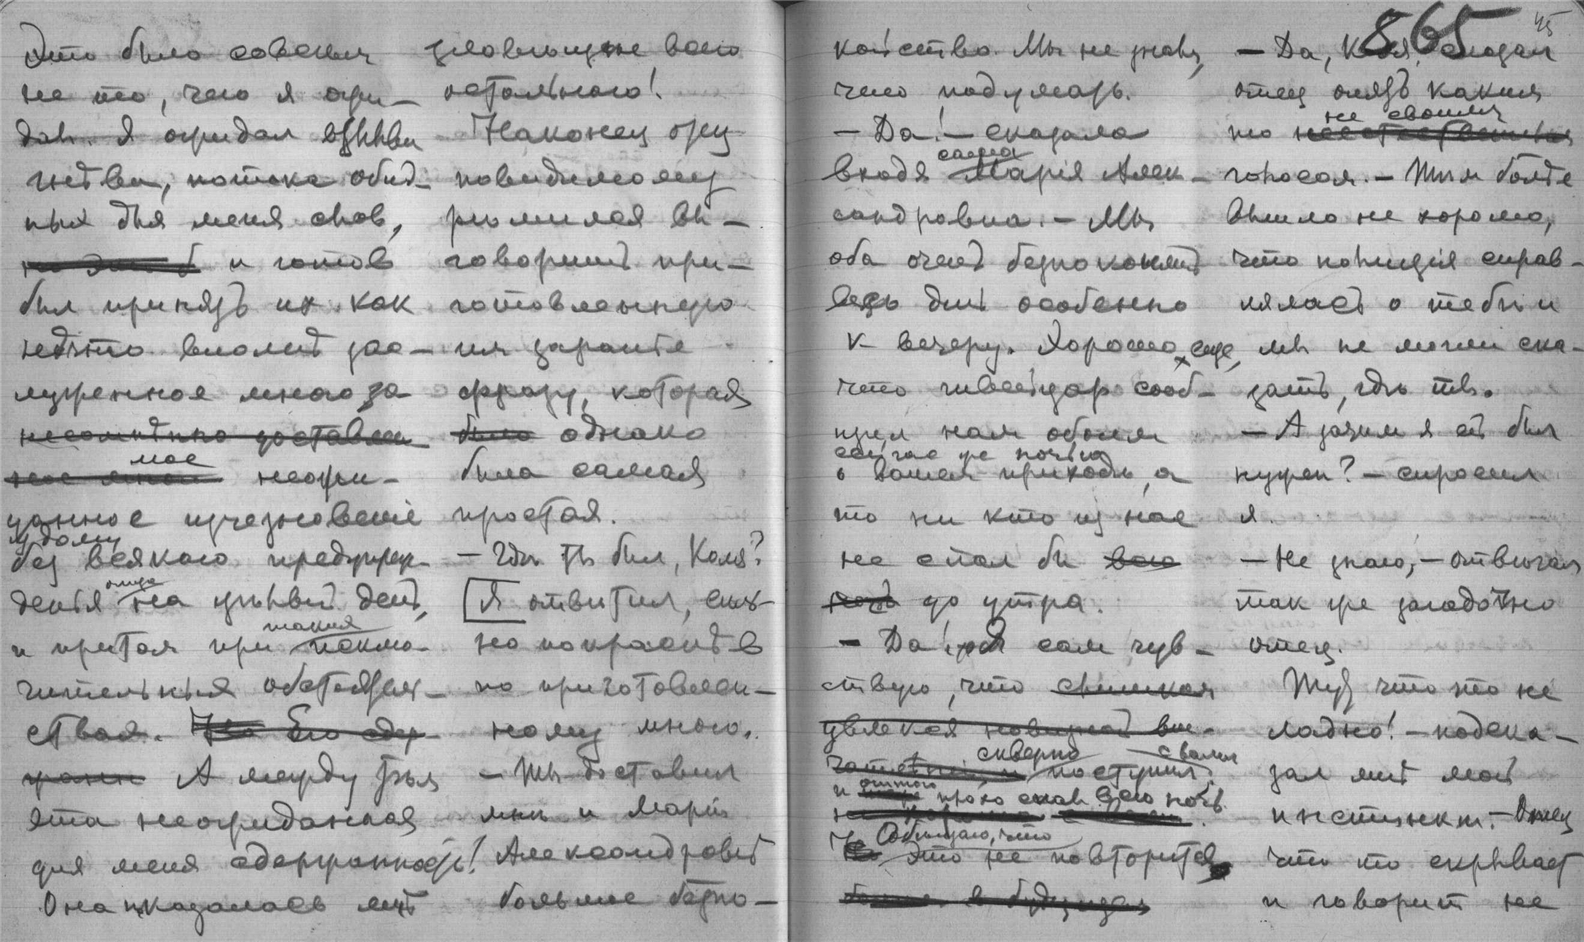 Это было совсем
не то, чего я ожи-
дал. Я ожидал
гнѣва, потока обид-
ных для меня слов,
и готов
был принять их как
нѣчто вполнѣ зас-
луженное мною за
мое неожи-
данное исчезновеніе
из дому
без всякаго предупреж-
денія отца на цѣлый день,
и притом при таких
исключительных обстоятель-
ствах.
А между тѣм
эта неожиданная
для меня сдержанность!
Она показалась мнѣ
зловѣщѣе всего
остального!
Наконец отец
повидимому
рѣшился вы-
говорить при-
готовленную
им заранѣе
фразу, которая
однако
была самая
простая.
— Гдѣ ты был, Коля?
Я отвѣтил, силь-
но покраснѣв
по приготовлен-
ному мною.
— Ты доставил
мнѣ и Маріи
Александровнѣ
большое безпо-
865
45
койство. Мы не знали,
что подумать.
— Да! — сказала
входя сама Марія Алек-
сандровна. — Мы
оба очень безпокоились
весь день особенно
к вечеру. Хорошо еще,
что швейцар сооб-
щил нам обоим
сейчас же ночью
о вашем приходѣ, а
то никто из нас
не спал бы
до утра.
— Да! я сам чув-
ствую, что
скверно
поступил с вами
и оттого проспал всю ночь.
Обѣщаю, что
это не повторится
— Да, Коля, сказал
отец опять каким
то не своим
голосом. — Тѣм болѣе
вышло не хорошо,
что полиція справ-
лялась о тебѣ и
мы не могли ска-
зать, гдѣ ты.
— А зачѣм я ей был
нужен? — спросил
я.
— Не знаю, — отвѣчал
так же загадочно
отец.
Тут что то не
ладно! — подска-
зал мнѣ мой
инстинкт. — Отец
что то скрывает
и говорит не